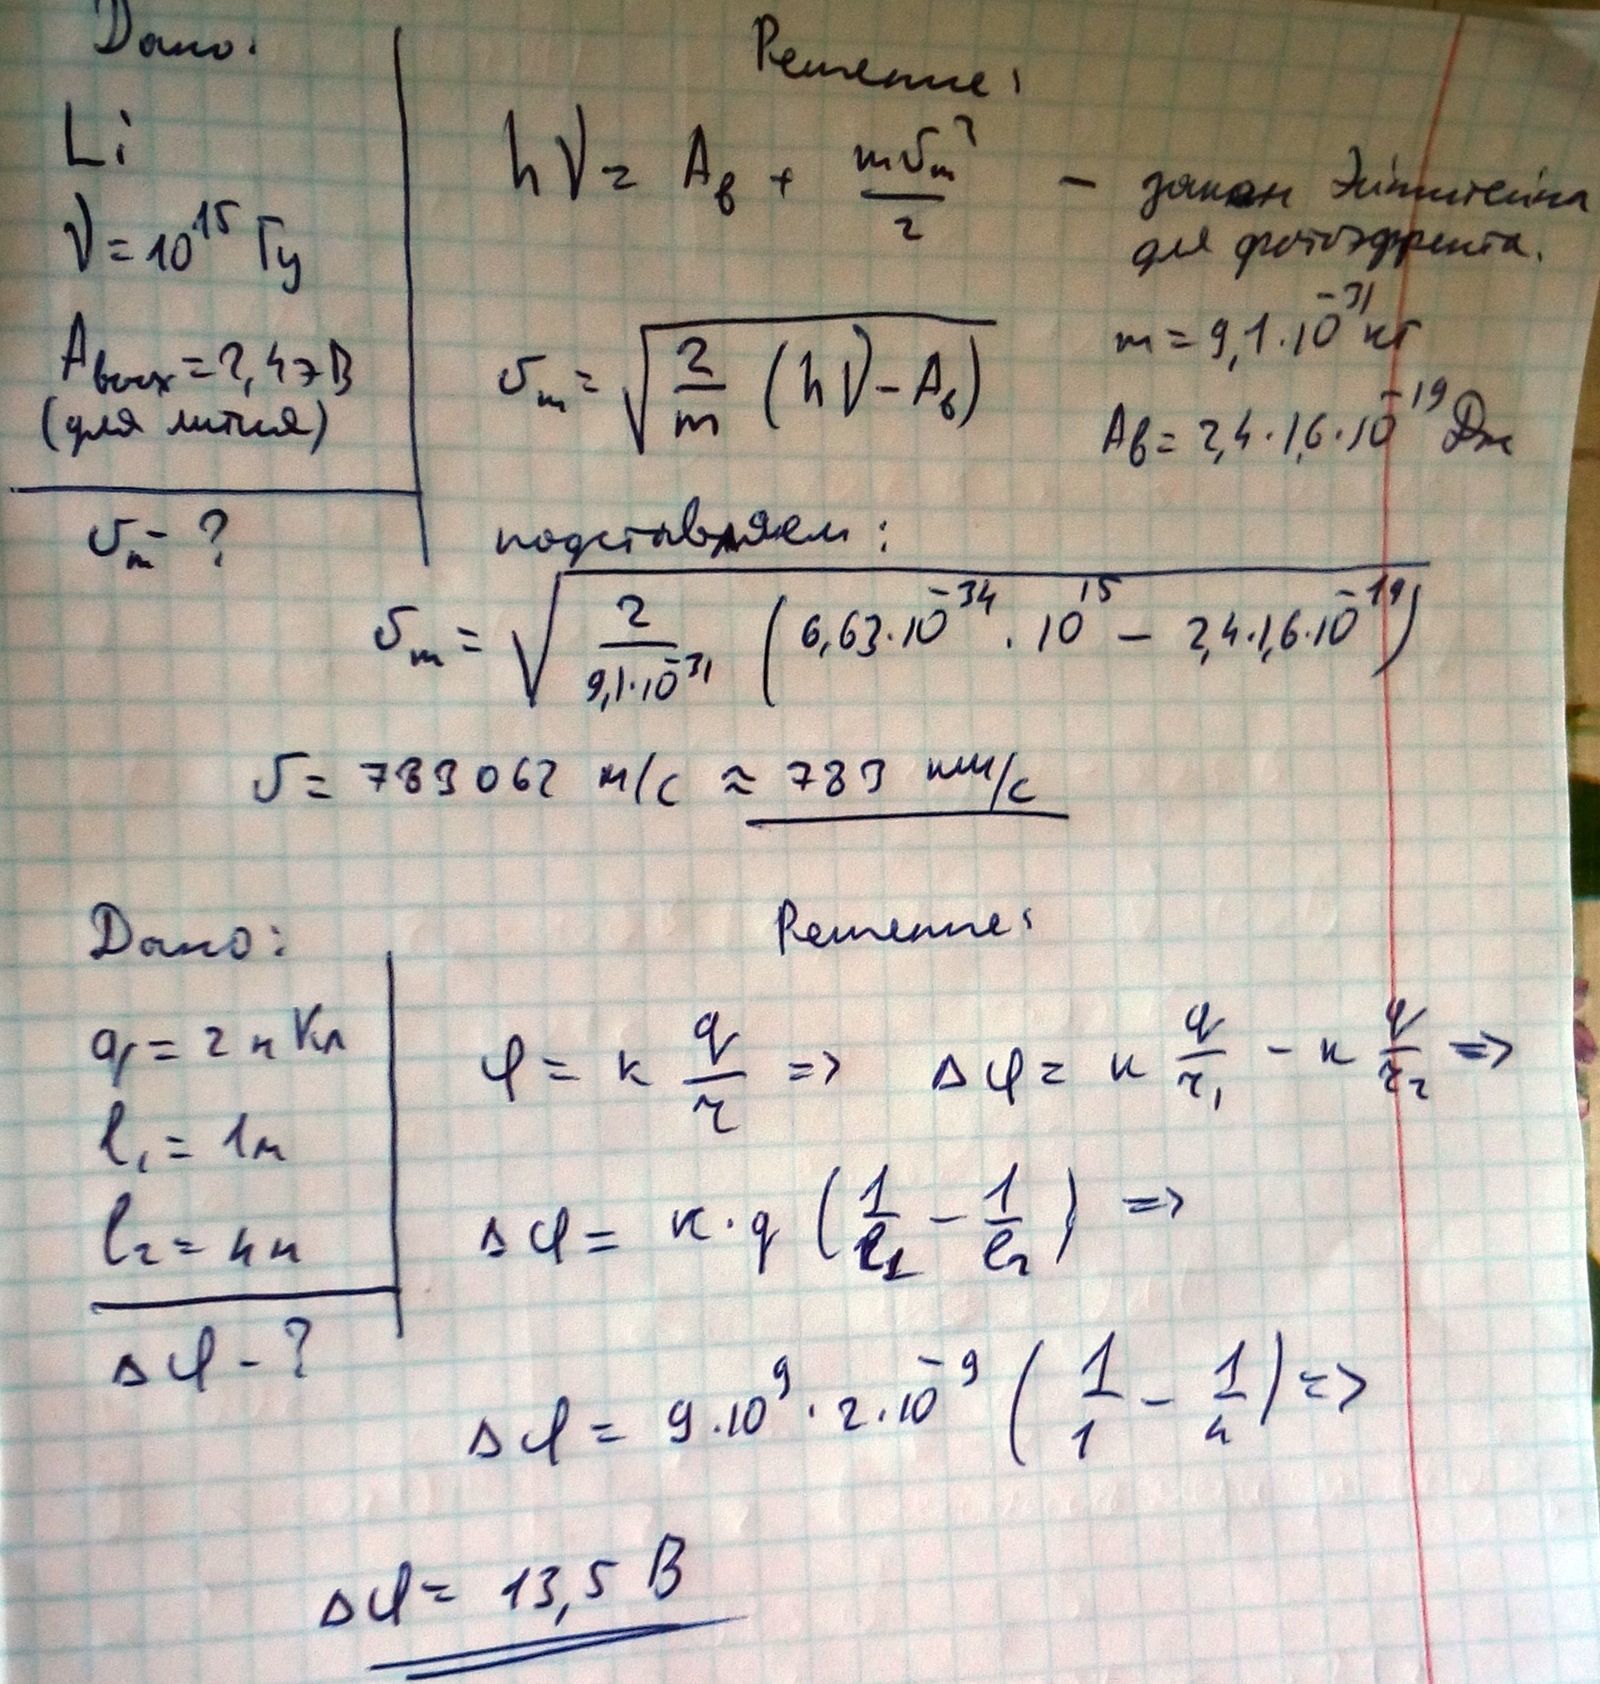 Дано:
Li
ν = 10^15 Гц
Aвых = 2,4 эВ
(для лития)
υm - ?
Решение:
hν = Aв + mυm²/2 - закон Эйнштейна
для фотоэффекта.
m = 9,1·10^-31 кг
υm = √(2/m (hν - Aв))
Aв = 2,4·1,6·10^-19 Дж
подставляем:
υm = √(2/9,1·10^-31 (6,63·10^-34 · 10^15 - 2,4·1,6·10^-19))
υ = 783062 м/с ≈ 783 км/с
Дано:
q = 2 нКл
l₁ = 1м
l₂ = 4м
Δφ - ?
Решение:
φ = к q/r => Δφ = к q/r₁ - к q/r₂ =>
Δφ = к·q (1/l₁ - 1/l₂) =>
Δφ = 9·10^9 · 2·10^-9 (1/1 - 1/4) =>
Δφ = 13,5 В